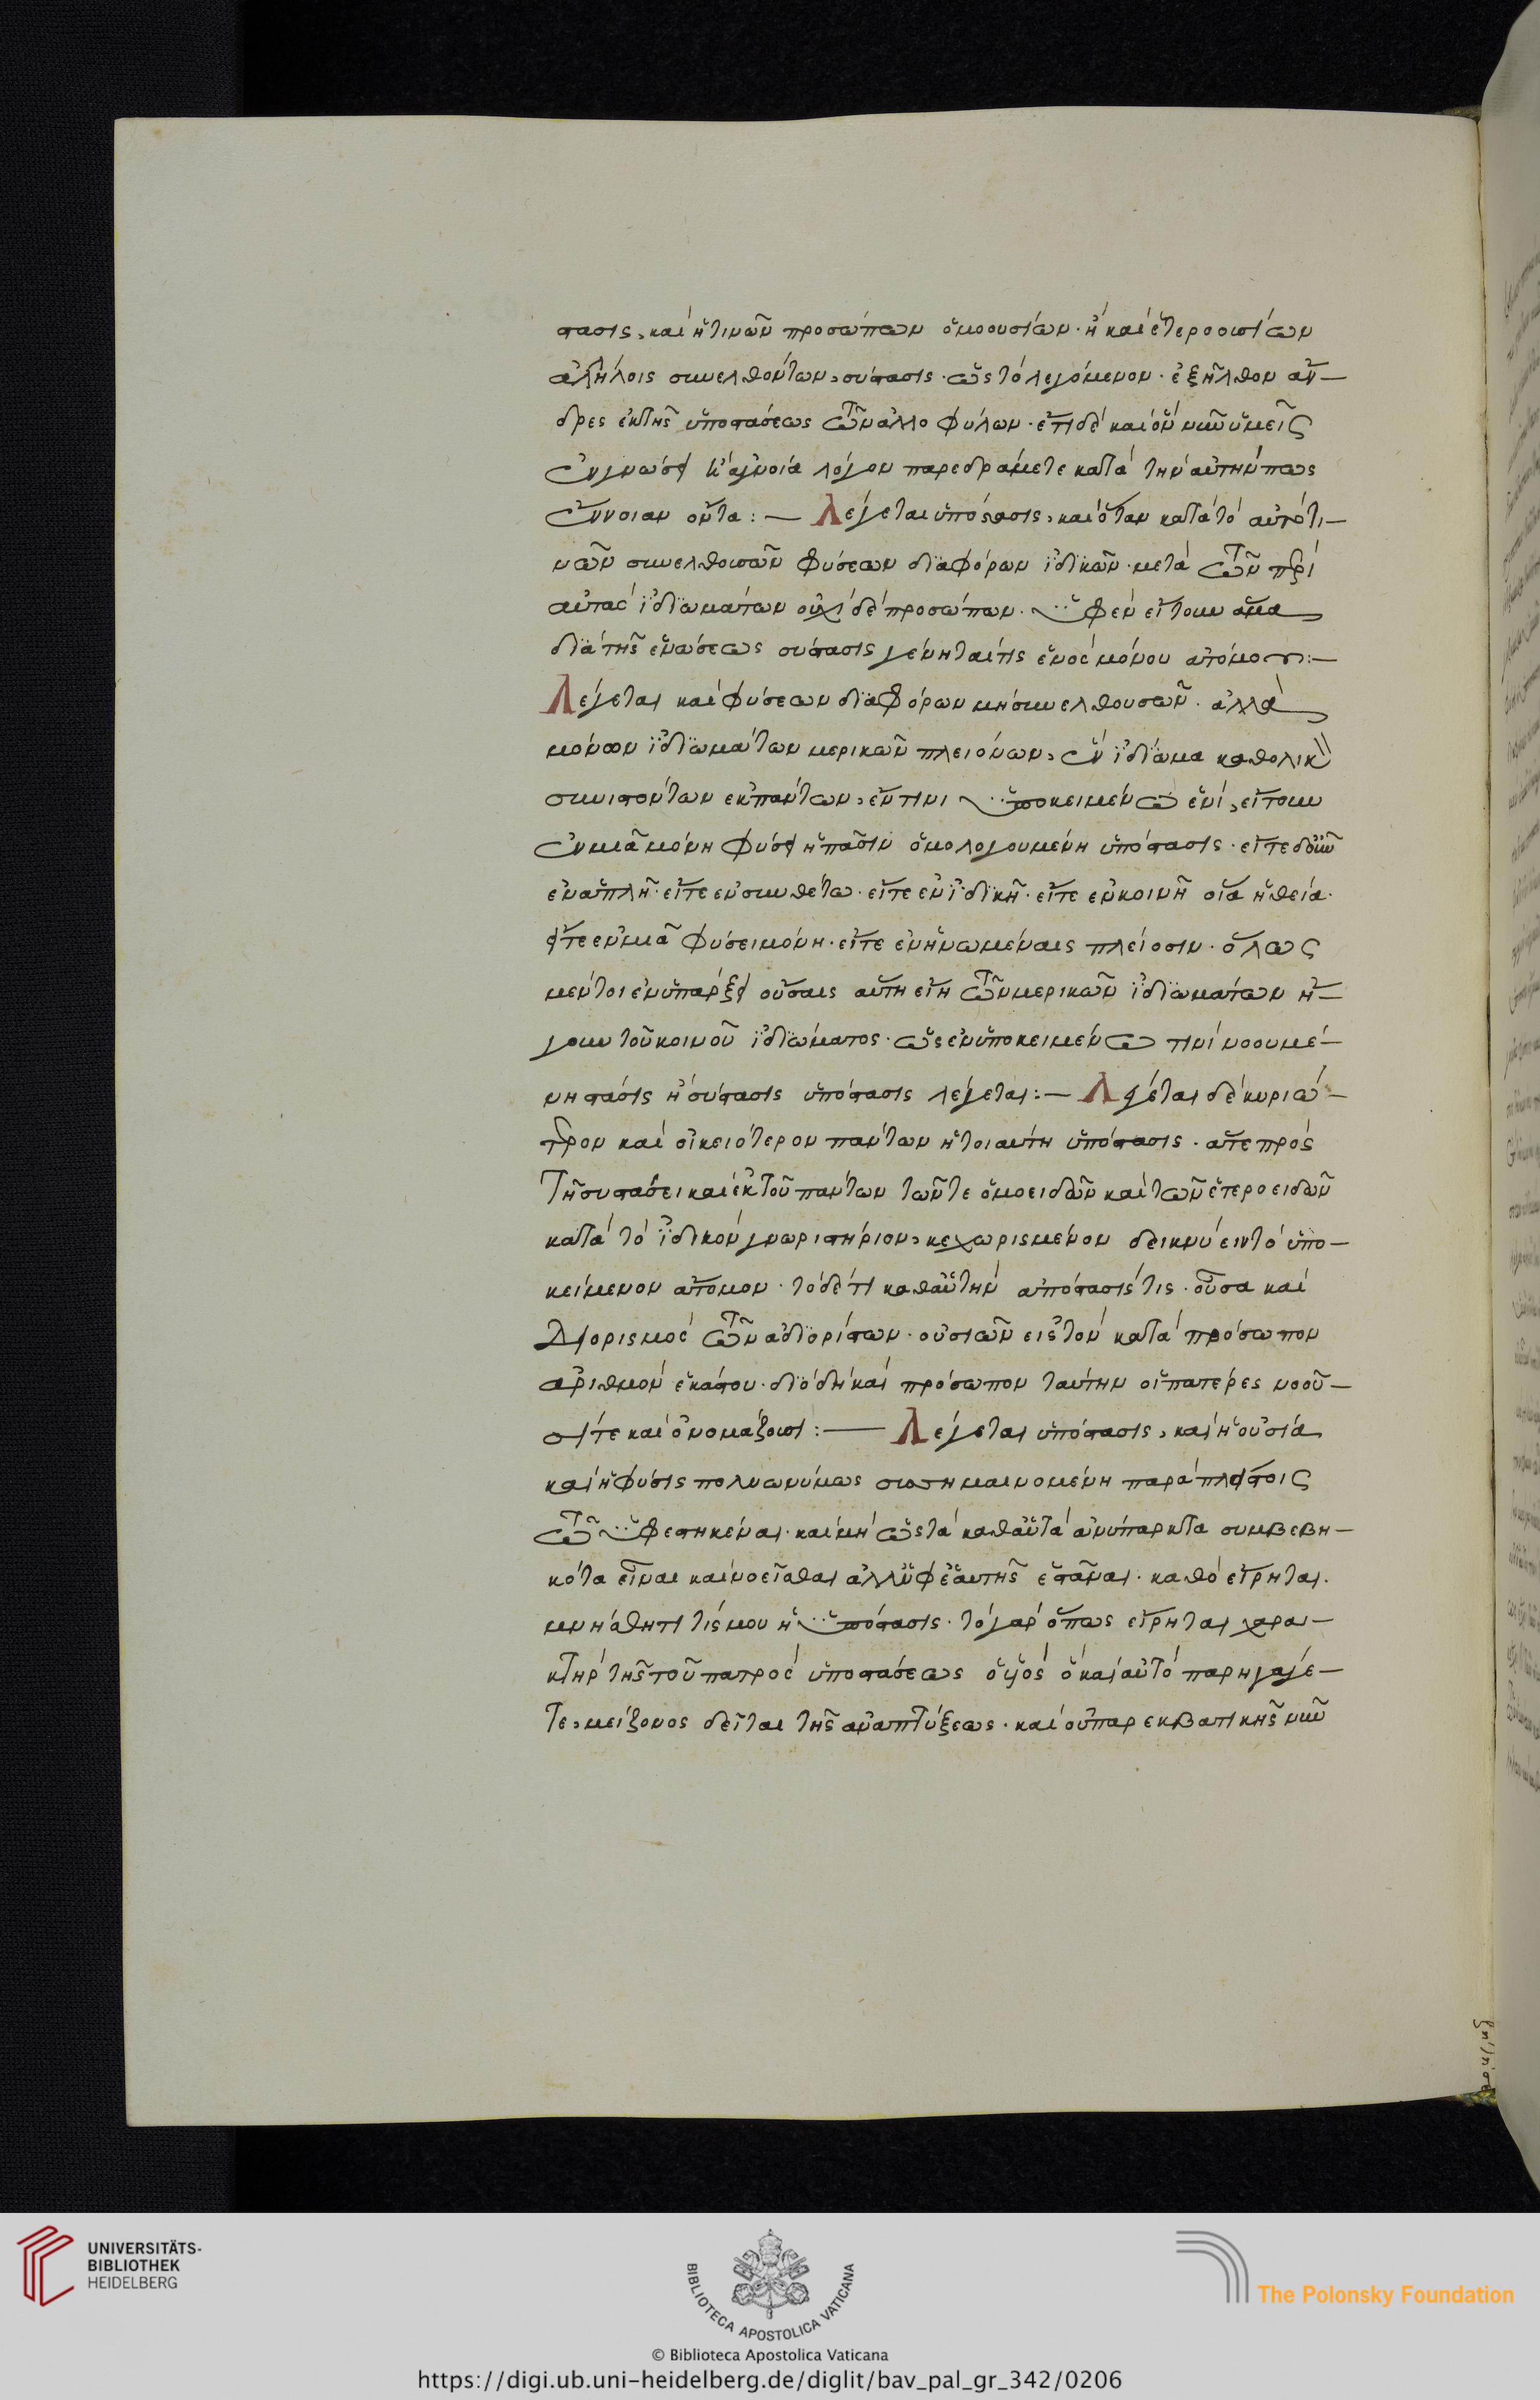 στασις, καὶ ἡ τινῶν προσώπων ὁμοουσίων · ἢ καὶ ἑτεροουσίων
ἀλλήλοις συνελθόντων, σύστασις · ὡς τὸ λεγόμενον · ἐξῆλθον ἄν–
δρες ἐκ τῆς ὑποστάσεως τῶν ἀλλοφύλων · ἔτι δὲ καὶ ὃν νῦν ὑμεῖς
ἐν γνώσει κἀγνοία λόγον παρεδράμετε κατὰ τὴν αὐτήν πως
ἔννοιαν ὄντα :— Λέγεται ὑπόστασις, καὶ ὅταν κατὰ τὸ αὐτό τι–
νῶν συνελθουσῶν φύσεων διαφόρων ἰδικῶν · μετὰ τῶν περὶ
αὐτὰς ἰδιωμάτων οὐχὶ δὲ προσώπων · ὑφ' ἓν εἴτουν ἅμα
διὰ τῆς ἑνώσεως σύστασις γένηταί τις ἑνὸς μόνου ἀτόμου :—
Λέγεται καὶ φύσεων διαφόρων μὴ συνελθουσῶν · ἀλλὰ
μόνων ἰδιωμάτων μερικῶν πλειόνων, ἓν ἰδίωμα καθολικὸν
συνιστόντων ἐκ πάντων, ἔν τινι ὑποκειμένω ἑνὶ, εἴτουν
ἐν μιᾶ μόνη φύσει ἡ πᾶσιν ὁμολογουμένη ὑπόστασις · εἴτε δ' οὖν
ἐν ἁπλῆ · εἴτε ἐν συνθέτω · εἴτε ἐν ἰδικῆ · εἴτε ἐν κοινῆ οἵα ἡ θεία ·
εἴτε ἐν μιᾶ φύσει μόνη · εἴτε ἐν ἡνωμέναις πλείοσιν · ὅλως
μέντοι ἐν ὑπάρξει οὔσαις αὕτη εἴη τῶν μερικῶν ἰδιωμάτων ἤ–
γουν τοῦ κοινοῦ ἰδιώματος · ὡς ἐν ὑποκειμένω τινὶ νοουμέ–
νη στάσις ἢ σύστασις ὑπόστασις λέγεται :— Λέγεται δὲ κυριώ–
τερον καὶ οἰκειότερον πάντων ἡ τοιαύτη ὑπόστασις · ἅτε πρὸς
τῆ συστάσει καὶ ἐκ τοῦ πάντων τῶν τε ὁμοειδῶν καὶ τῶν ἑτεροειδῶν
κατὰ τὸ ἰδικὸν γνωριστήριον, κεχωρισμένον δεικνύειν τὸ ὑπο–
κείμενον ἄτομον · τὸ δέ τι καθ' αὑτὴν ἀπόστασίς τις · οὖσα καὶ
διορισμὸς τῶν ἀδιορίστων · οὐσιῶν εἰς τὸν κατὰ πρόσωπον
ἀριθμὸν ἑκάστου · διὸ δὴ καὶ πρόσωπον ταύτην οἱ πατέρες νοοῦ–
σί τε καὶ ὀνομάζουσι :— Λέγεται ὑπόστασις, καὶ ἡ οὐσία
καὶ ἡ φύσις πολυωνύμως συσσημαινομένη παρὰ πλείστοις
τῶ ὑφεστηκέναι · καὶ μὴ ὡς τὰ καθ' αὑτὰ ἀνύπαρκτα συμβεβη–
κότα εἶναι καὶ νοεῖσθαι ἀλλ' ὑφ' ἑαυτῆς ἑστάναι · καθὸ εἴρηται ·
μνήσθητι τίς μου ἡ ὑπόστασις · τὸ γὰρ ὅπως εἴρηται χαρα–
κτὴρ τῆς τοῦ πατρὸς ὑποστάσεως ὁ υἱὸς ὃ καὶ αὐτὸ παρηγάγε–
τε, μείζονος δεῖται τῆς ἀναπτύξεως · καὶ οὐ παρεκβατικῆς νῦν
UNIVERSITÄTS-
BIBLIOTHEK
HEIDELBERG
BIBLIOTECA APOSTOLICA VATICANA
The Polonsky Foundation
© Biblioteca Apostolica Vaticana
https://digi.ub.uni-heidelberg.de/diglit/bav_pal_gr_342/0206